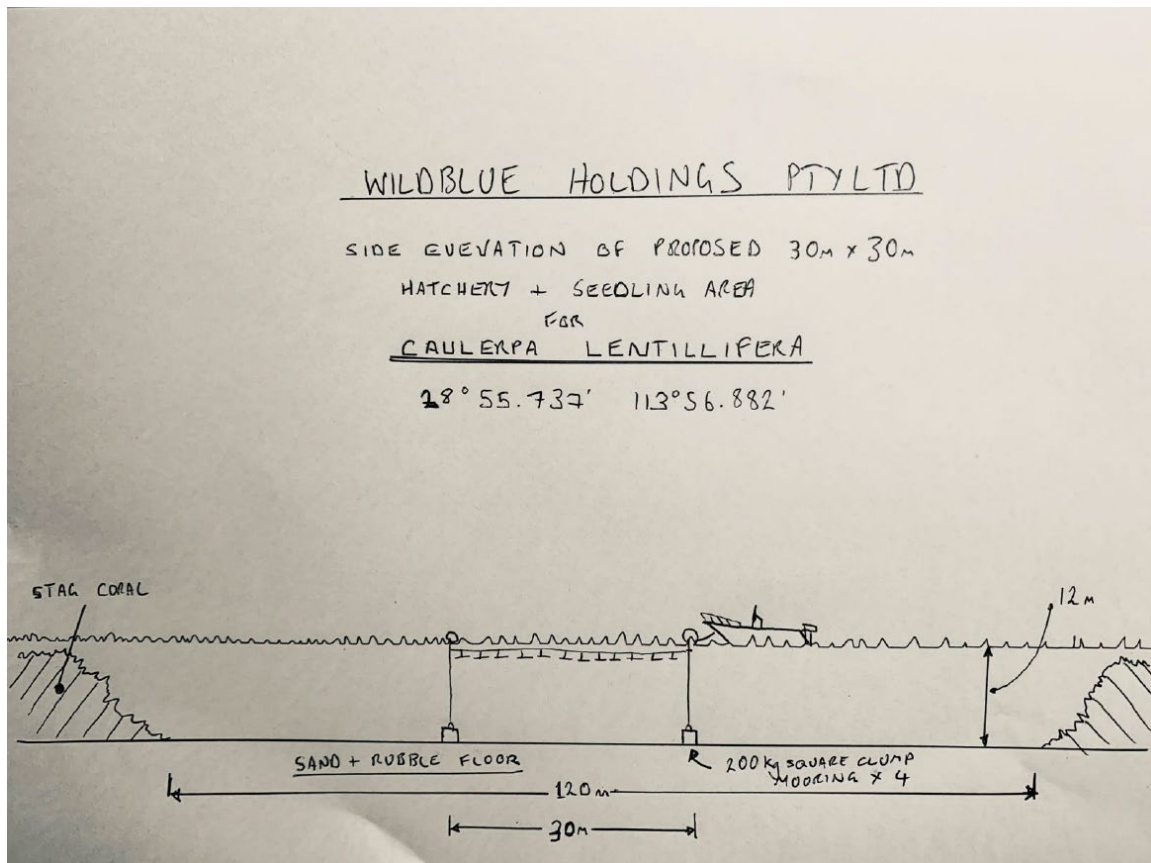 WILDBLUE HOLDINGS PTY LTD
SIDE EVEVATION OF PROPOSED 30m x 30m
HATCHERY + SEEDLING AREA
FOR
CAULERPA LENTILLIFERA
28° 55.737' 113° 56.882'
STAG CORAL
12 m
SAND + RUBBLE FLOOR
200 Kg SQUARE CLUMP
MOORING X 4
120 m
30m